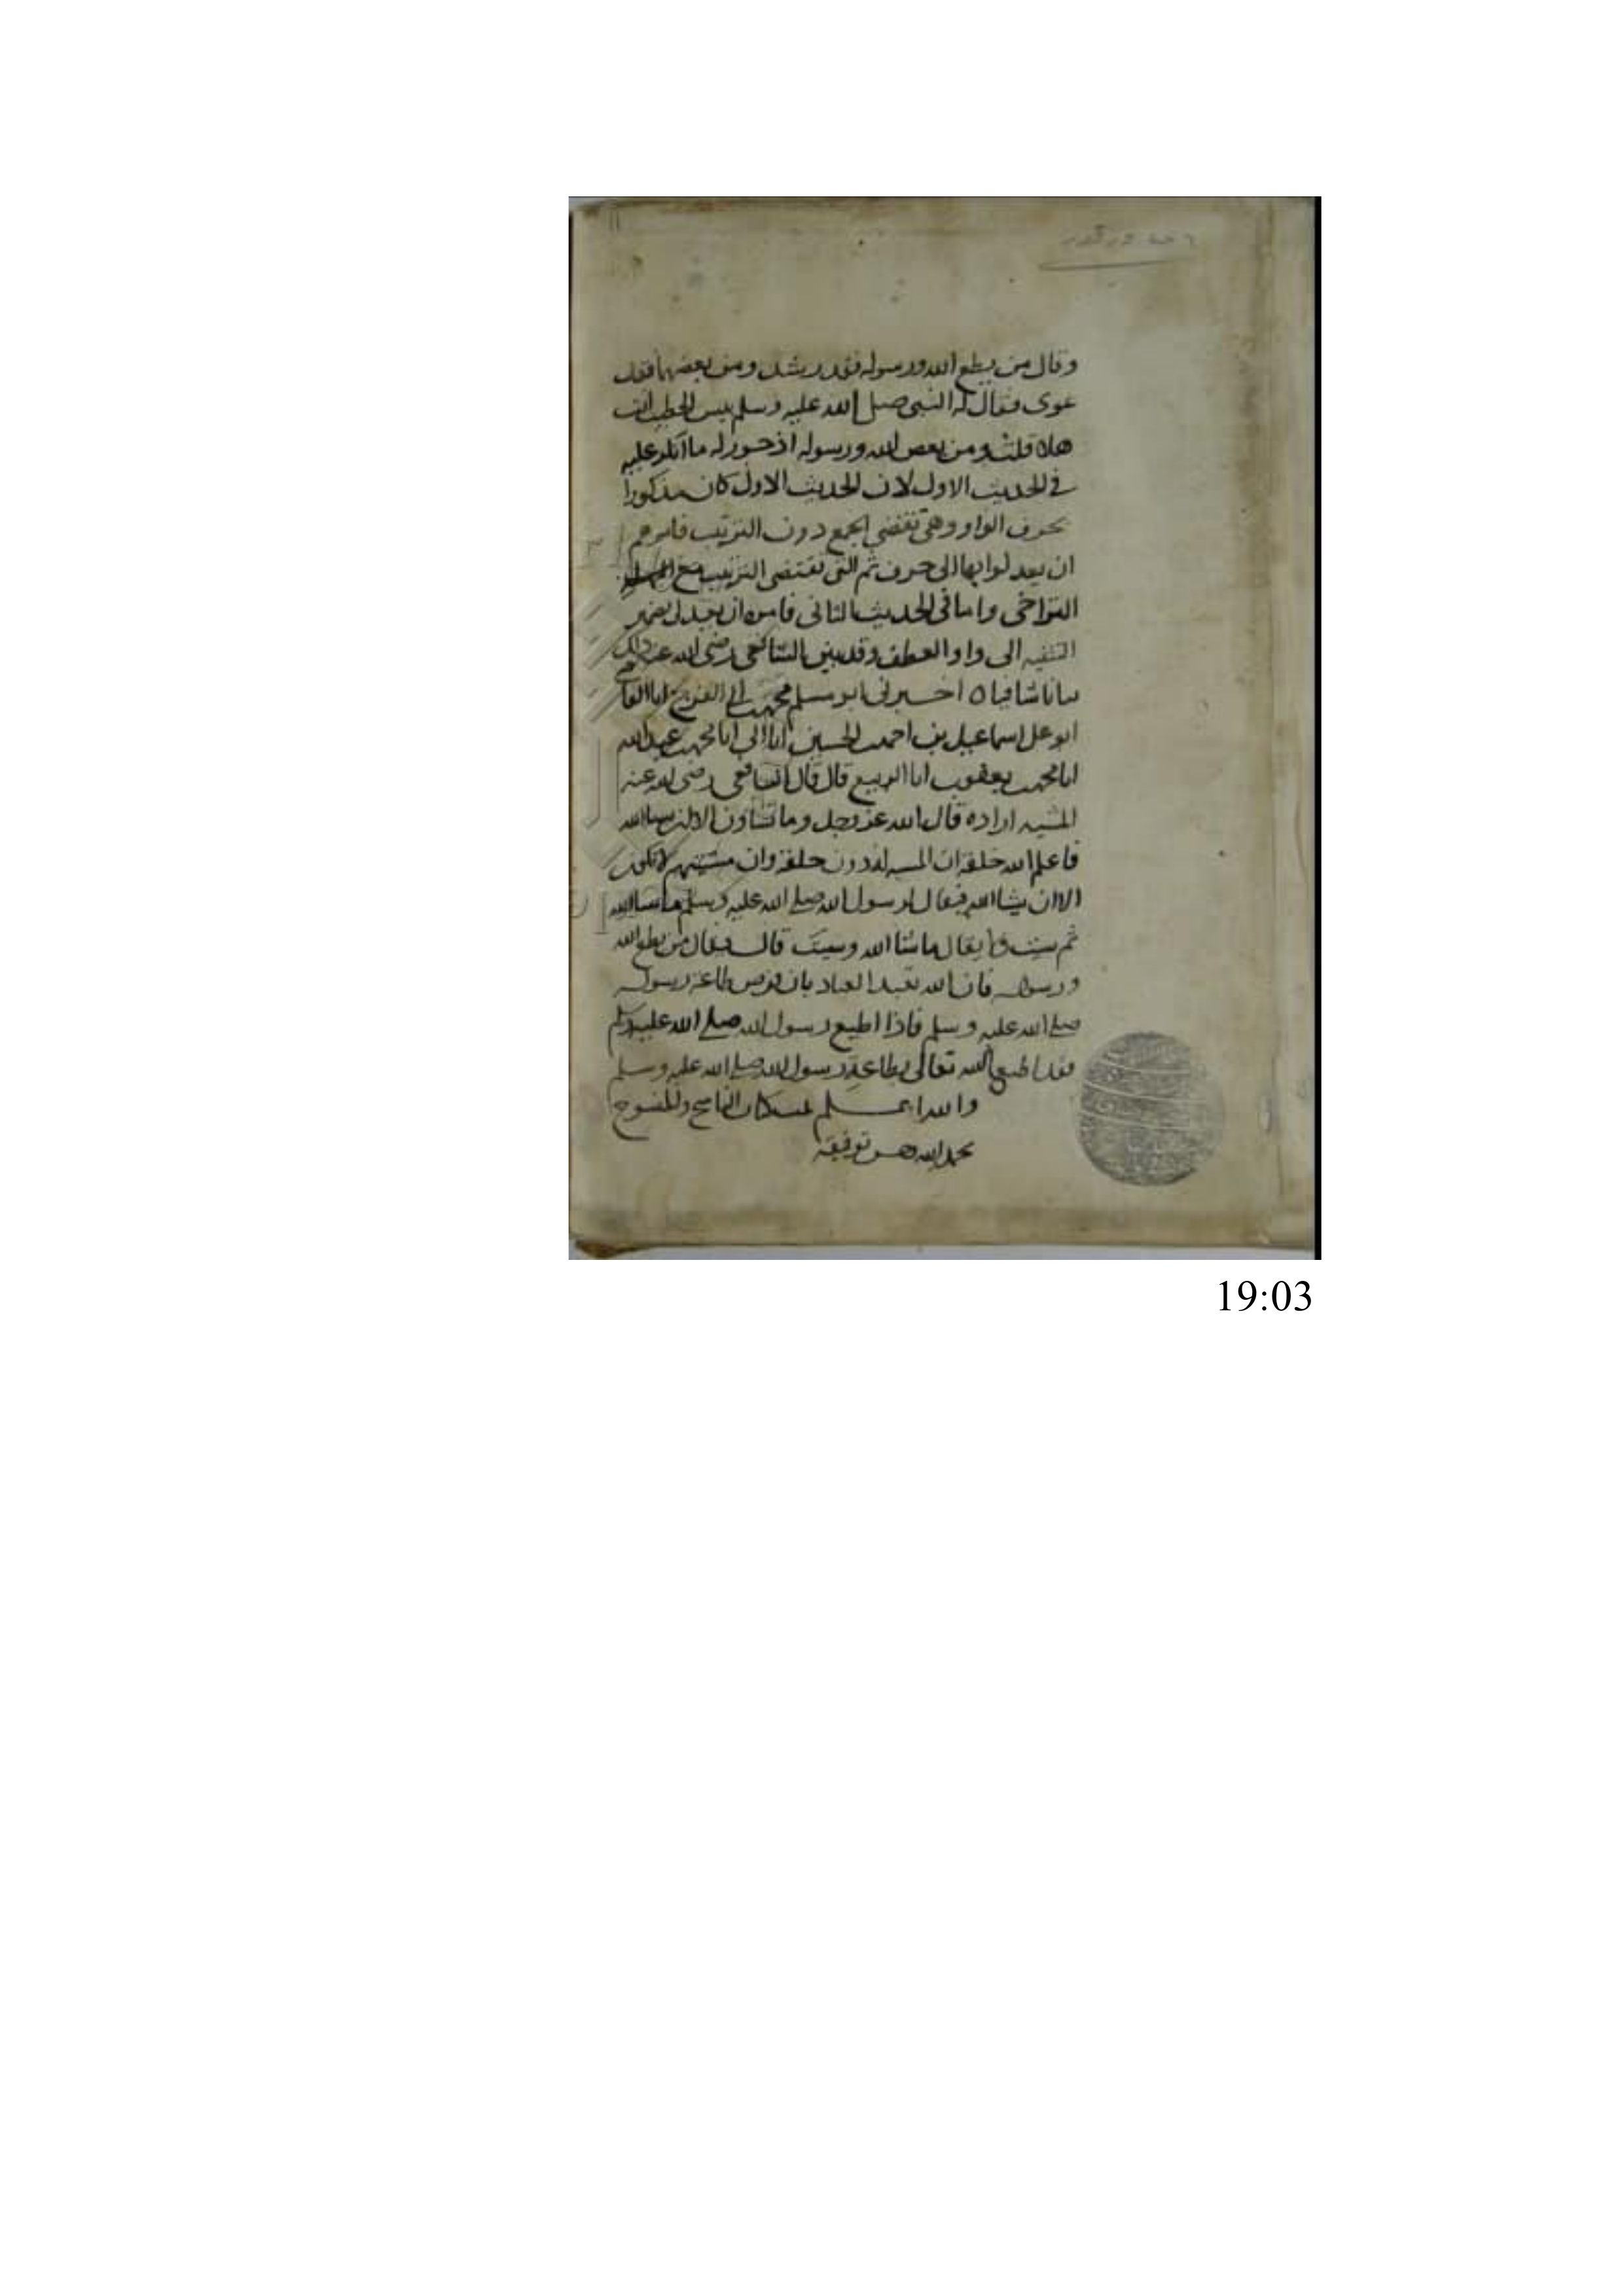 وقال من يطع الله ورسوله فقد رشد ومن يعصهما فقد
غوى فقال له النبي صلى الله عليه وسلم بيس الخطيب انت
هلا قلت ومن يعص الله ورسوله اذ جوز له ما انكر عليه
في الحديث الاول لان الحديث الاول كان مذكورا
بحرف الواو وهي تقتضي الجمع دون الترتيب فامرهم
ان يعدلوا بها الى حرف ثم التي تقتضي الترتيب مع
التراخي واما في الحديث الثاني فامره ان يعدل بضمير
التثنيه الى واو العطف وقد بين الشافعي رضي الله عنه ذلك
بيانا شافيا ه اخبرني ابو مسلم محمد بن ابي الفرج انا القاضي
ابو علي اسماعيل بن احمد بن الحسين انا ابي انا محمد بن عبد الله
انا محمد بن يعقوب انا الربيع قال قال الشافعي رضي الله عنه
المشيه اراده قال الله عز وجل وما تشاون الا ان يشا الله
فاعلم الله خلقه ان المشيه له دون خلقه وان مشيتهم لا تكون
الا ان يشا الله فيقال لرسول الله صلى الله عليه وسلم ما شا الله
ثم شيت ولا يقال ما شا الله وشيت قال ويقال من يطع الله
ورسوله فان الله تعبد العباد بان فرض طاعة رسوله
صلى الله عليه وسلم فاذا اطيع رسول الله صلى الله عليه وسلم
فقد اطيع الله تعالى بطاعة رسول الله صلى الله عليه وسلم
والله اعلم الناسخ والمنسوخ
بحمد الله وحسن توفيقه
19:03